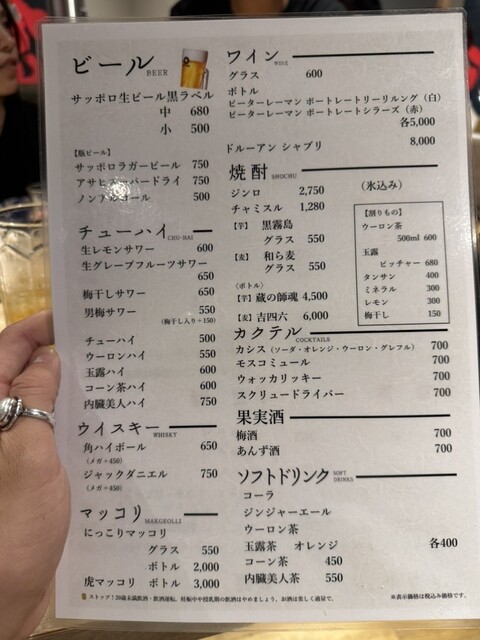 ビール BEER
サッポロ生ビール黒ラベル
中 680
小 500
【瓶ビール】
サッポロラガービール 750
アサヒスーパードライ 750
ノンアルコール 500
チューハイ CHU-HAI
生レモンサワー 600
生グレープフルーツサワー
650
梅干しサワー 650
男梅サワー 550
(梅干し入り+150)
チューハイ 500
ウーロンハイ 550
玉露ハイ 600
コーン茶ハイ 600
内臓美人ハイ 750
ウイスキー WHISKY
角ハイボール 650
(メガ+450)
ジャックダニエル 750
(メガ+450)
マッコリ MAKGEOLLI
にっこりマッコリ
グラス 550
ボトル 2,000
虎マッコリ ボトル 3,000
ワイン WINE
グラス 600
ボトル
ピーターレーマン ポートレートリーリルング（白）
ピーターレーマン ポートレートシラーズ（赤）
各5,000
ドルーアン シャブリ 8,000
焼酎 SHOCHU
ジンロ 2,750 （氷込み）
チャミスル 1,280
【芋】 黒霧島
グラス 550
【麦】 和ら麦
グラス 550
〈ボトル〉
【芋】蔵の師魂 4,500
【麦】吉四六 6,000
【割りもの】
ウーロン茶
500ml 600
玉露
ピッチャー 680
タンサン 400
ミネラル 300
レモン 300
梅干し 150
カクテル COCKTAILS
カシス（ソーダ・オレンジ・ウーロン・グレフル） 700
モスコミュール 700
ウォッカリッキー 700
スクリュードライバー 700
果実酒
梅酒 700
あんず酒 700
ソフトドリンク SOFT DRINKS
コーラ
ジンジャーエール
ウーロン茶
玉露茶 オレンジ 各400
コーン茶 450
内臓美人茶 550
ストップ！20歳未満飲酒・飲酒運転。妊娠中や授乳期の飲酒はやめましょう。お酒は楽しく適量で。
※表示価格は税込み価格です。